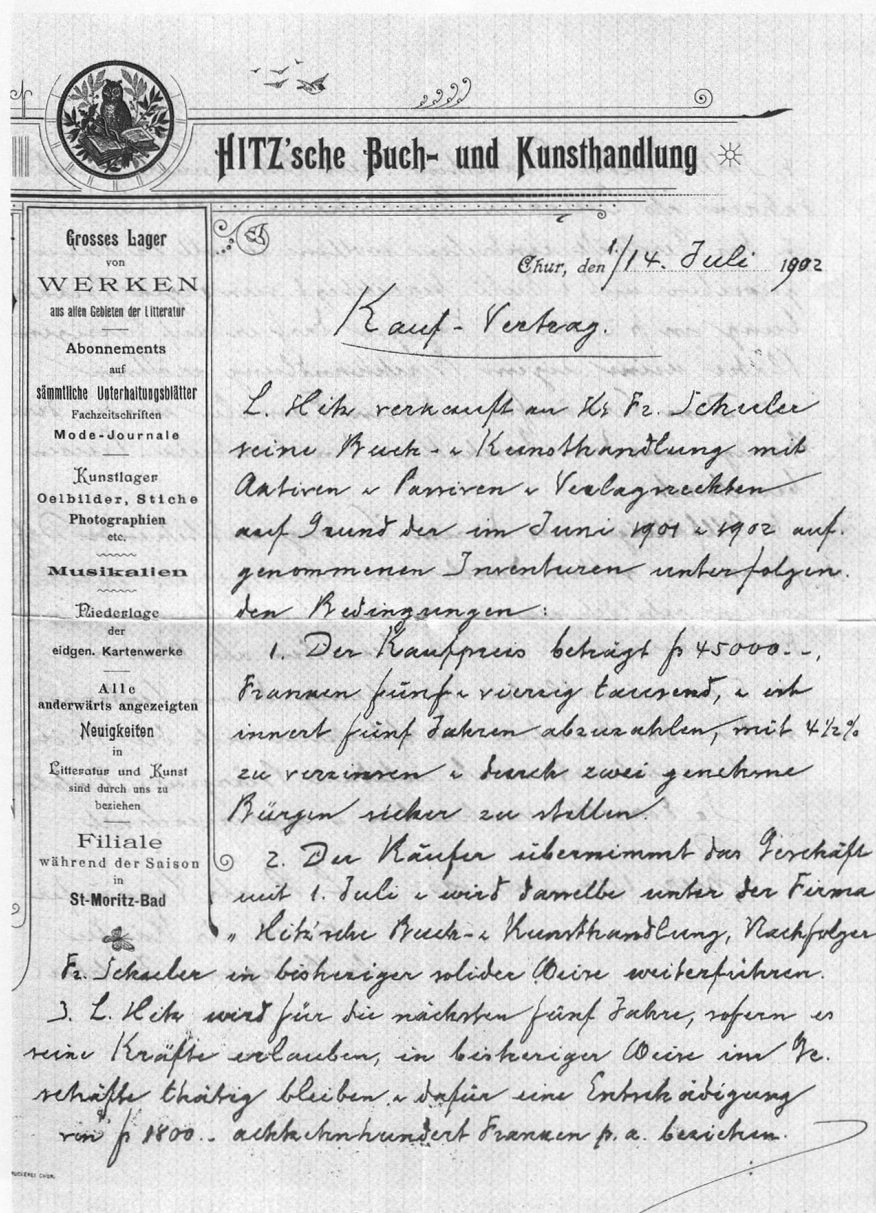 HITZ'sche Buch- und Kunsthandlung
Grosses Lager
von
WERKEN
aus allen Gebieten der Litteratur
Abonnements
auf
sämmtliche Unterhaltungsblätter
Fachzeitschriften
Mode-Journale
Kunstlager
Oelbilder, Stiche
Photographien
etc.
Musikalien
Niederlage
der
eidgen. Kartenwerke
Alle
anderwärts angezeigten
Neuigkeiten
in
Litteratur und Kunst
sind durch uns zu
beziehen
Filiale
während der Saison
in
St-Moritz-Bad
Chur, den 1./14. Juli 1902
Kauf-Vertrag.
L. Hitz verkauft an Hr Fr. Schuler
seine Buch- & Kunsthandlung mit
Aktiven & Passiven & Verlagsrechten
auf Grund der im Juni 1901 & 1902 auf-
genommenen Inventuren unter folgen-
den Bedingungen:
1. Der Kaufpreis beträgt fr 45000.-,
Franken fünf & vierzig tausend, & ist
innert fünf Jahren abzuzahlen, mit 4½%
zu verzinsen & durch zwei genehme
Bürgen sicher zu stellen.
2. Der Käufer übernimmt das Geschäft
mit 1. Juli & wird dasselbe unter der Firma
„ Hitz'sche Buch- & Kunsthandlung, Nachfolger
Fr. Schuler in bisheriger solider Weise weiterführen.
3. L. Hitz wird für die nächsten fünf Jahre, sofern es
seine Kräfte erlauben, in bisheriger Weise im Ge-
schäfte thätig bleiben & dafür eine Entschädigung
von fr 1800.- achtzehnhundert Franken p. a. beziehen.